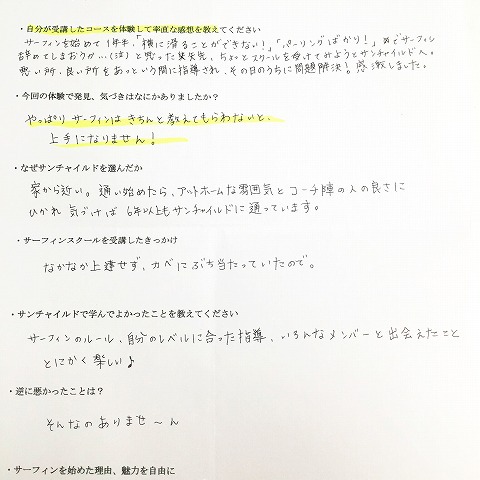 ・自分が受講したコースを体験して率直な感想を教えてください
サーフィンを始めて1年半、「横に滑ることができない!」「パーリングばかり!」でサーフィン
辞めてしまおうか…(泣)と思った矢先、ちょっとスクールを受けてみようとサンチャイルドへ。
悪い所、良い所をあっという間に指導され、その日のうちに問題解決!感激しました。
・今回の体験で発見、気づきはなにかありましたか?
やっぱりサーフィンはきちんと教えてもらわないと、
上手になりません!
・なぜサンチャイルドを選んだか
家から近い。通い始めたら、アットホームな雰囲気とコーチ陣の人の良さに
ひかれ 気づけば 6年以上もサンチャイルドに通っています。
・サーフィンスクールを受講したきっかけ
なかなか上達せず、カベにぶち当たっていたので。
・サンチャイルドで学んでよかったことを教えてください
サーフィンのルール、自分のレベルに合った指導、いろんなメンバーと出会えたこと
とにかく楽しい♪
・逆に悪かったことは?
そんなのありませ〜ん
・サーフィンを始めた理由、魅力を自由に